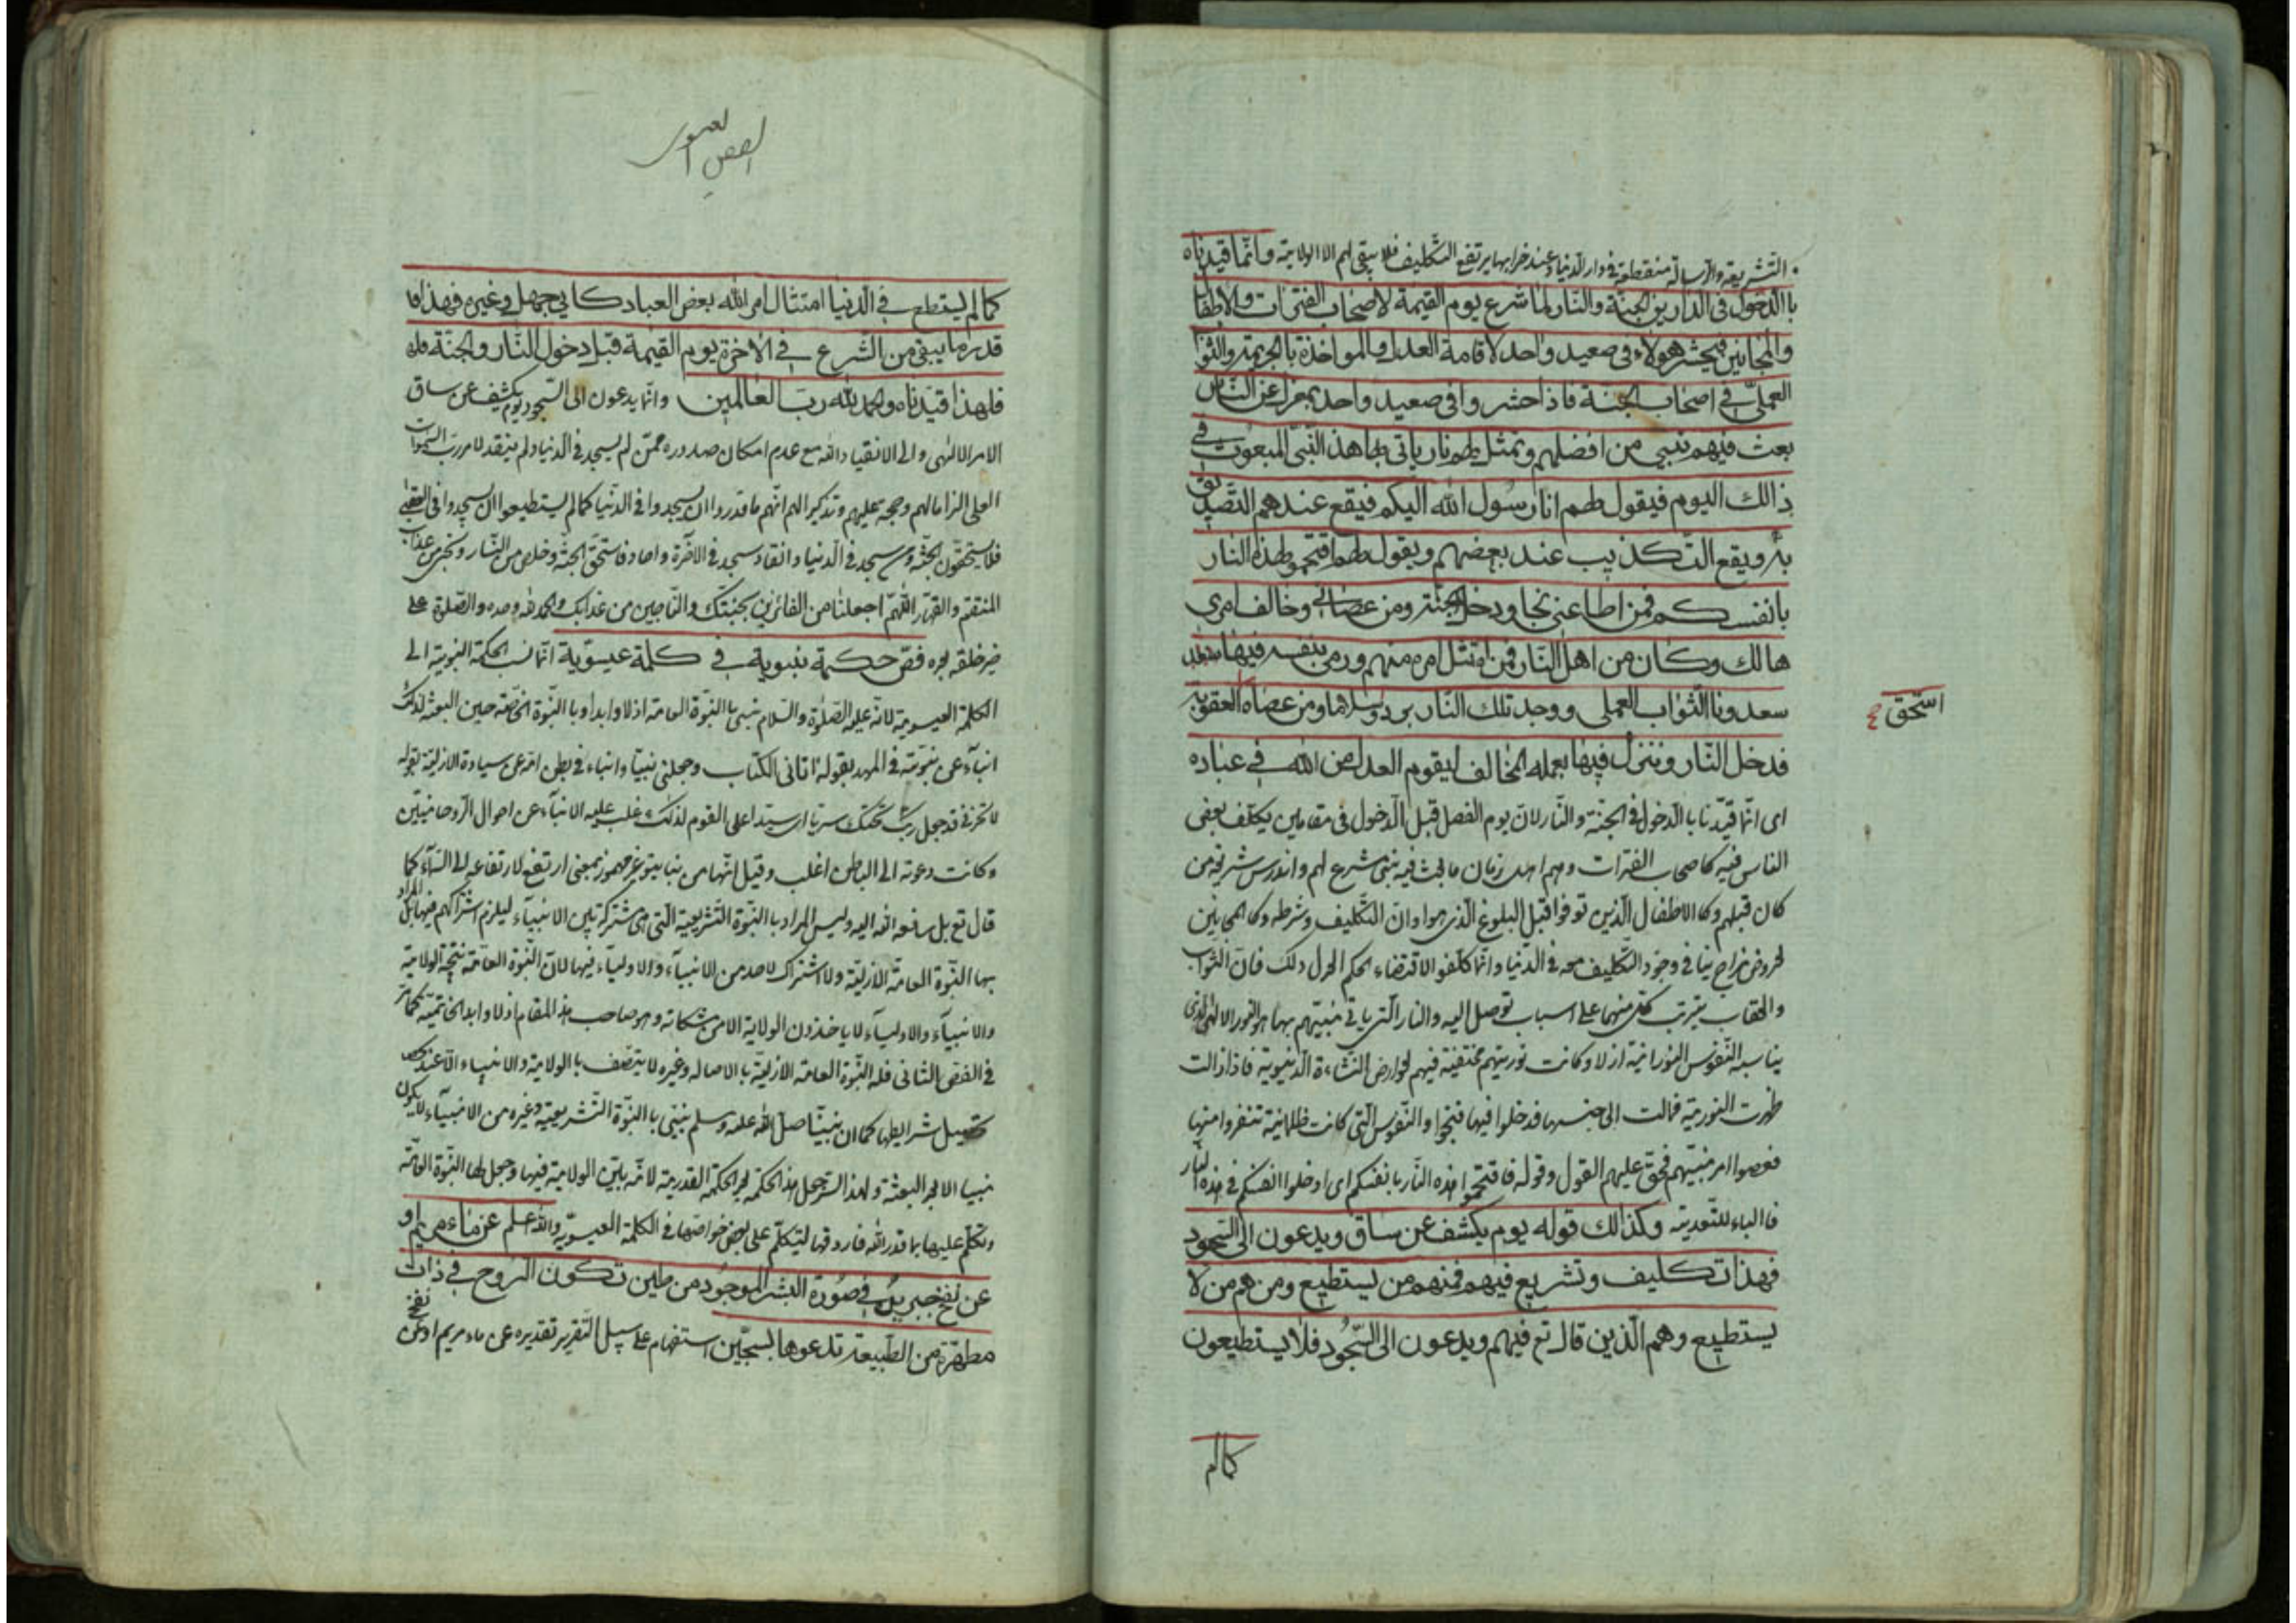 التشريعية والرسالة منقطعة في دار الدنيا وعند خرابها يرتفع التكليف فلا يبقى لهم الا الولاية وانما قيدناه
با الدخول فى الدارين الجنة والنار لما شرع يوم القيمة لاصحاب الفترات والاطفال
والمجانين فيحشر هولاء فى صعيد واحد لاقامة العدل والمواخذة بالجريمة والثواب
العملى في اصحاب الجنة فاذا حشروا فى صعيد واحد بمعزل عن الناس
بعث فيهم نبي من افضلهم وتمثل لهم نار ياتى بها هذا النبى المبعوث في
ذالك اليوم فيقول لهم انا رسول الله اليكم فيقع عندهم التصديق
به ويقع التكذيب عند بعضهم ويقول لهم اقتحموا هذه النار
بانفسكم فمن اطاعنى نجا ودخل الجنة ومن عصانى وخالف امرى
هالك وكان من اهل النار فمن امتثل امره منهم ورمى بنفسه فيها
سعد ونا الثواب العملى ووجد تلك النار بردا وسلاما ومن عصاه العقوبة
استحق صح
فدخل النار ونزل فيها بعمله المخالف ليقوم العدل من الله في عباده
اى انما قيدنا با الدخول في الجنة والنار لان يوم الفصل قبل الدخول فى مقامين يكلف بعض
الناس فيه كاصحاب الفترات وهم اهل زمان ما بعث فيه نبى مشرع لهم واندرس شريعة من
كان قبلهم وكا الاطفال الذين توفوا قبل البلوغ الذى هو اوان التكليف وشرطه وكا المجانين
لعروض مزاج ينافى وجود التكليف معه في الدنيا وانما كلفوا لاقتضاء الحكم العدل ذلك فان الثواب
والعقاب يترتب كل منهما على اسباب توصل اليه والنار التى ياتى نبيهم بها هو النور الالهى الذى
يناسبه النفوس النورانية ازلا وكانت نوريتهم مختفية فيهم لعوارض النشاءة الدنيوية فاذا زالت
ظهرت النورية فمالت الى جنسها فدخلوا فيها فنجوا والنفوس التى كانت ظلمانية تنفروا منها
فعصوا امر نبيهم فحق عليهم القول وقوله فاقتحموا هذه النار بانفسكم اى ادخلوا انفسكم في هذه النار
فا الباء للتعدية وكذالك قوله يوم يكشف عن ساق ويدعون الى السجود
فهذا تكليف وتشريع فيهم فمنهم من يستطيع ومن هم من لا
يستطيع وهم الذين قال تع فيهم ويدعون الى السجود فلا يستطيعون
كما لم
كما لم يستطع في الدنيا امتثال امر الله بعض العباد كابي جهل وغيره فهذا
قدر ما يبقى من الشرع في الاخرة يوم القيمة قبل دخول النار والجنة
فلهذا قيدناه والحمد لله رب العالمين وانما يدعون الى السجود يوم يكشف عن ساق
الامر الالهى والى الانقياد الله مع عدم امكان صدوره ممن لم يسجد في الدنيا ولم ينقد لامر رب السموات
العلى الزاما لهم وحجة عليهم وتذكيرا لهم انهم ما قدروا ان يسجدوا في الدنيا كما لم يستطيعوا ان يسجدوا فى العقبى
فلا يستحقون الجنة ومن سجد في الدنيا وانقاد سجد في الاخرة فاستحق الجنة وخلص من النار ونجى من عذاب
المنتقم والقهار اللهم اجعلنا من الفائزين بجنتك والناجين من عذابك والحمد لله وحده والصلوة على
خير خلقه فص حكمة نبوية في كلمة عيسوية انما نسب الحكمة النبوية الى
الكلمة العيسوية لانه عليه الصلوة والسلام نبى با النبوة العامة ازلا وابدا وبا النبوة الخاصة حين البعثة لذلك
انباء عن نبوته فى المهد بقوله اتانى الكتاب وجعلنى نبيا وانباء في بطن امه عن سيادة الازلية بقوله
لا تحزنى قد جعل ربك تحتك سريا اى سيدا على القوم لذلك غلب عليه الانباء عن احوال الروحانيين
وكانت دعوته الى الباطن اغلب وقيل انها من نبا ينبو غير مهموز بمعنى ارتفع لارتفاعه الى السماء كما
قال تع بل رفعه الله اليه وليس المراد با النبوة التشريعية التى هى مشتركة بين الانبياء ليلزم اشتراكهم فيها بل المراد
بها النبوة العامة الازلية ولا اشتراك لاحد من الانبياء والاولياء فيها لان النبوة العامة نتيجة الولاية
والانبياء والاولياء لا ياخذون الولاية الا من مشكاته وهو صاحب هذا المقام ازلا وابدا كما مر
في الفص الثانى فله النبوة العامة الازلية با الاصالة وغيره لا يتصف با الولاية والانبياء الا عند
تحصيل شرايطها كما ان نبينا صلى الله عليه وسلم نبى با النبوة التشريعية وغيره من الانبياء لا يكون
نبيا الا بعد البعثة ولهذا السر جعل هذا الحكمة بعد الحكمة القدرية لانه بين الولاية فيها وجعل لها النبوة العامة
وتكلم عليها بما قدر الله فاردفها ليتكلم على بعض خواصها فى الكلمة العيسوية والله اعلم عن ماء مريم او
عن نفخ جبريل في صورة البشر الموجود من طين تكون الروح في ذات
مطهرة من الطبيعة تدعوها بسجين استفهام على سبيل التقرير تقديره عن ماء مريم او عن نفخ